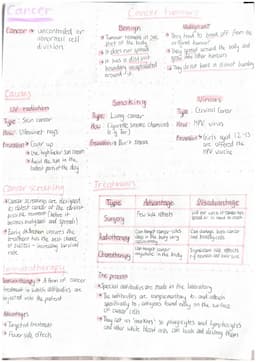 Cancer
Cancer → uncontrolled or
abnormal cell
division
Cancer tumours
Benign
→ Tumour remains in one
part of the body
→ It does not spread
→ It has a distinct
boundary
around it
Malignant
→ They tend to break off from the
original tumour
→ They spread around the body and
into other tumours
→ They do not have a distinct boundary
Causes
UV radiation
Type: Skin cancer
How: Ultraviolet rays
Prevention → Cover up
→ Use high factor sun cream
→ Avoid the sun in the
hottest part of the day
Smoking
Type: Lung cancer
How: Cigarette smoke chemicals
Prevention → Don't smoke
Viruses
Type: Cervical Cancer
How: HPV virus
Prevention → Girls aged 12-13
are offered the
HPV vaccine
Cancer screening
→ Cancer screenings are designed
to detect cancer at the earliest
possible moment (before it
becomes malignant and spreads)
→ Early detection ensures the
treatment has the best chance
of success - increasing survival
rate
Treatments
Type
Advantage
Disadvantage
Surgery
Few side effects
Radiotherapy
Can target cancer cells
deep in the body very
Can damage both cancer
and healthy cells
Chemotherapy
Can target cancer
anywhere in the body
Significant side effects
Immunotherapy
Immunotherapy → A form of cancer
treatment in which antibodies are
injected into the patient
Advantages
→ Targeted treatment
→ Fewer side effects
The process
→ Special antibodies are made in the laboratory
→ The antibodies are complementary to, and attach
specifically to, antigens found only on the surface
of cancer cells
→ They act as 'markers' so phagocytes and lymphocytes
and other white blood cells can find and destroy them